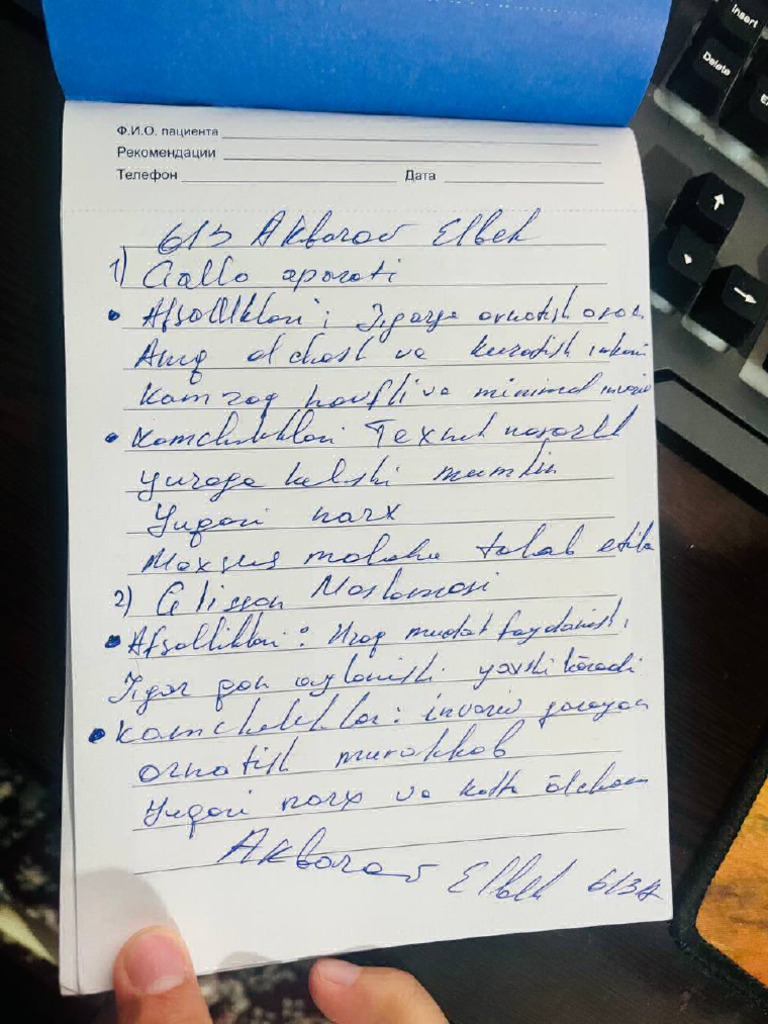 Insert
Delete
Ф.И.О. пациента
Рекомендации
Телефон Дата
613 Akbarov Elbek
1) Gallo aparati
• Afsalliklari: Jigarga ornatish oson
Aniq olchash va kuzatish imkoni
Kamroq havfli va minimal invaziv
• Kamchiliklari Texnik nosozlik
yuzaga kelishi mumkin
Yuqori narx
Maxsus malaka talab etila
2) Glisson Moslamasi
• Afsalliklari: Uzoq mudat faydalanish,
Jigar qon aylanishi yaxshi
• Kamchiliklar: invaziv jarayon
ornatish murakkab
Yuqori narx va katta ölcham
Akbarov Elbek 613A